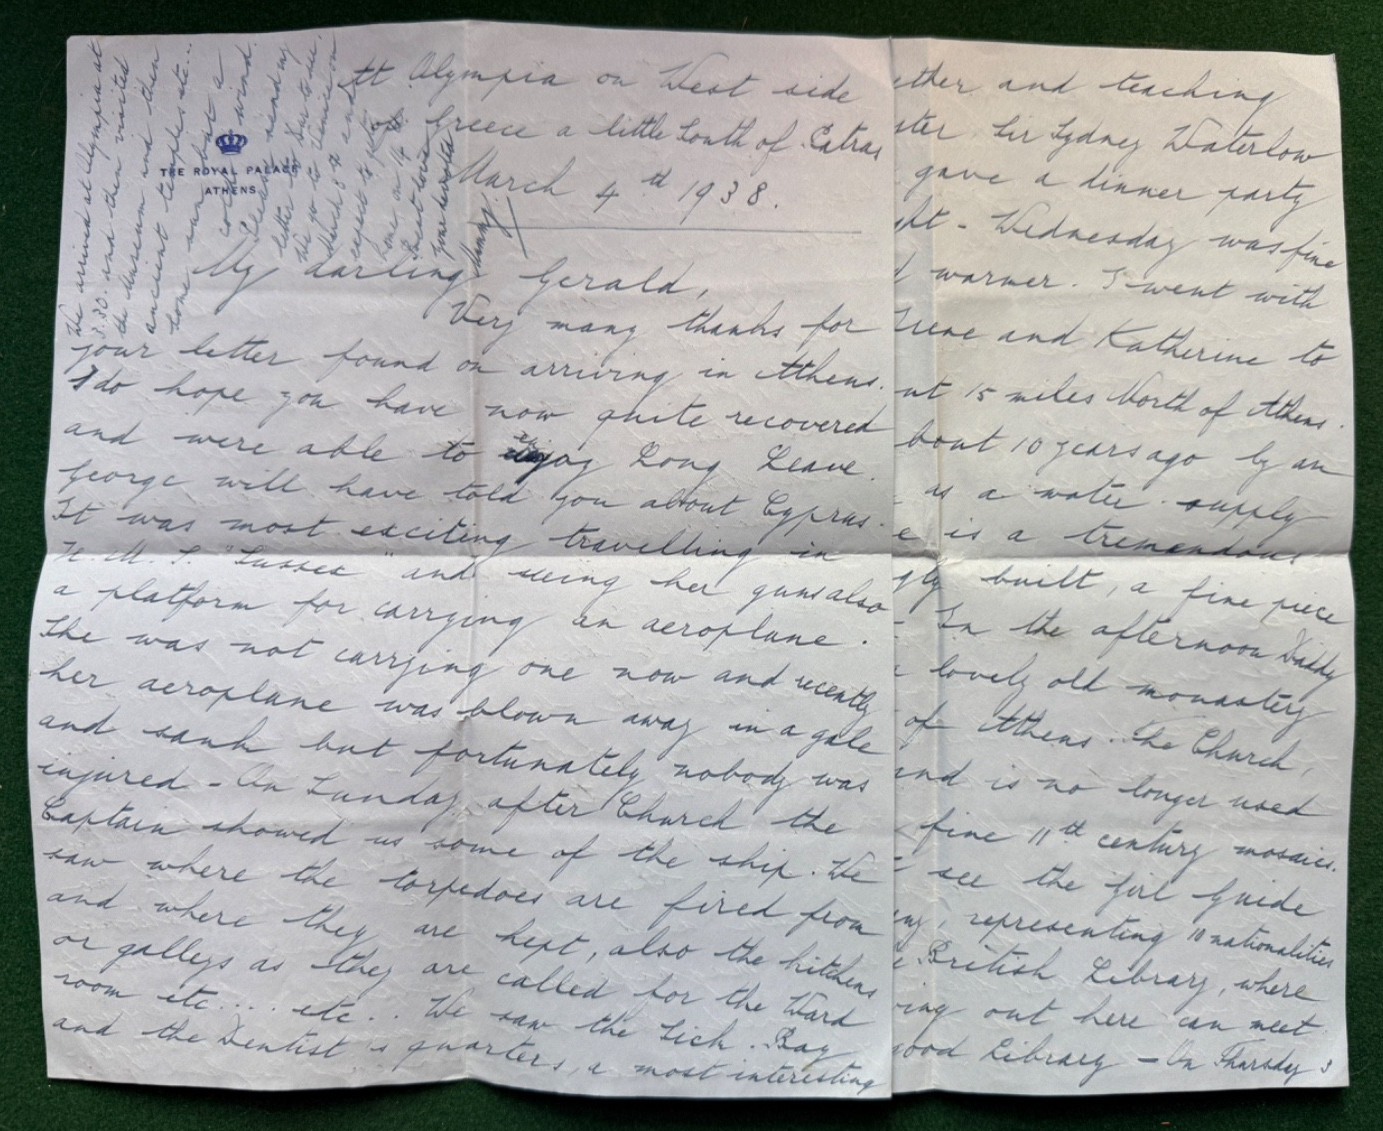 THE ROYAL PALACE
ATHENS
At Olympia on West side
Greece a little South of Patras
March 4th 1938.
My darling Gerald,
Very many thanks for
your letter found on arriving in Athens.
I do hope you have now quite recovered
and were able to enjoy Long Leave.
George will have told you about Cyprus.
It was most exciting travelling in
H.M.S. "Sussex" and seeing her guns also
a platform for carrying an aeroplane.
She was not carrying one now and recently
her aeroplane was blown away in a gale
and sank but fortunately nobody was
injured - On Sunday after Church the
Captain showed us some of the ship. We
saw where the torpedoes are fired from
and where they are kept, also the kitchens
or galleys as they are called for the Ward
room etc... etc.. We saw the Sick. Bay
and the Dentist's quarters, a most interesting
We arrived at Olympia at
3.30. and then visited
the Museum and then
ancient temples etc...
some sun but a
cold wind.
Please send my
letter to
We go to Venice on
March 8th and
expect to get
home on 14th.
Best love
your devoted
Mummy
ether and teaching
ster Sir Sydney Waterlow
gave a dinner party
ht - Wednesday was fine
d warmer. I went with
Irene and Katherine to
ut 15 miles North of Athens.
bout 10 years ago by an
as a water supply
e is a tremendous
gly built, a fine piece
- In the afternoon Daddy
lovely old monastery
of Athens. The Church,
and is no longer used
fine 11th century mosaics.
see the Girl Guide
ny, representing 10 nationalities
e British Library, where
ing out here can meet
good Library - On Thursday 3